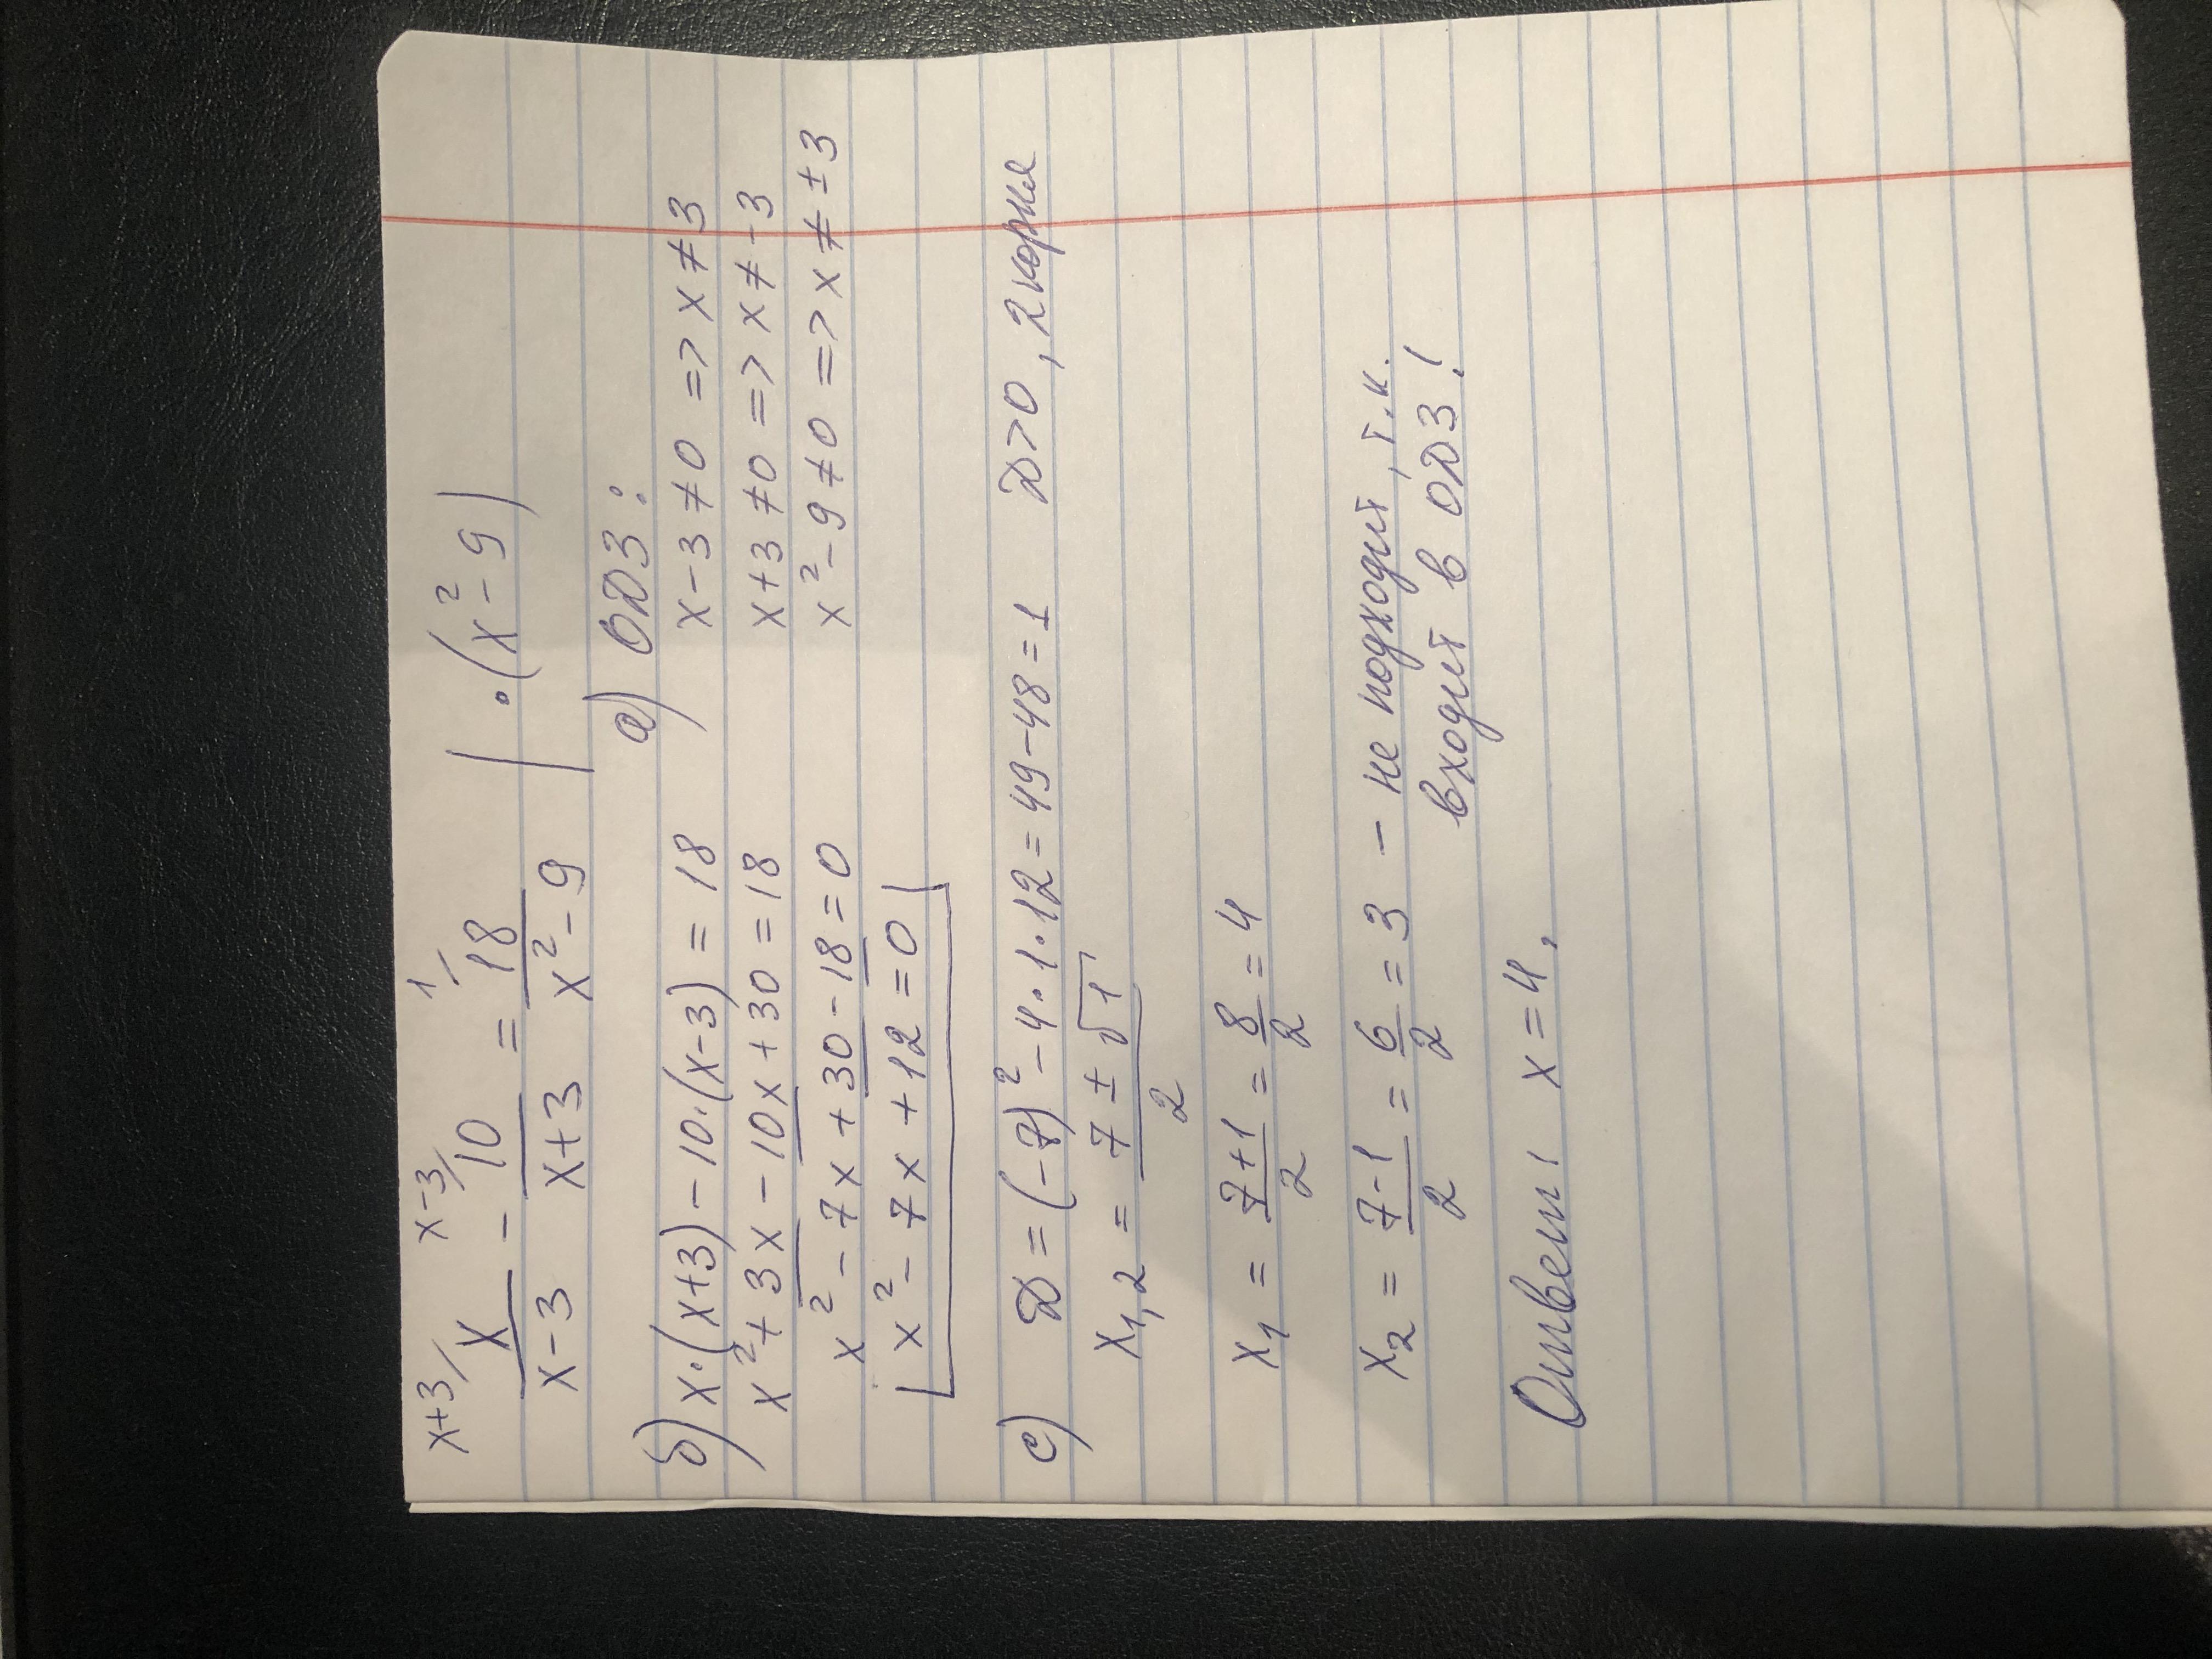 x+3/ x/(x-3) - x-3/ 10/(x+3) = 1/ 18/(x²-9) | · (x²-9) |
а) ОДЗ:
x-3≠0 => x≠3
x+3≠0 => x≠-3
x²-9≠0 => x≠±3
б) x·(x+3)-10·(x-3)=18
x²+3x-10x+30=18
x²-7x+30-18=0
x²-7x+12=0
c) D=(-7)²-4·1·12=49-48=1 D>0, 2 корня
x1,2 = (7±√1)/2
x1 = (7+1)/2 = 8/2 = 4
x2 = (7-1)/2 = 6/2 = 3 - не подходит, т.к.
входит в ОДЗ!
Ответ: x=4.